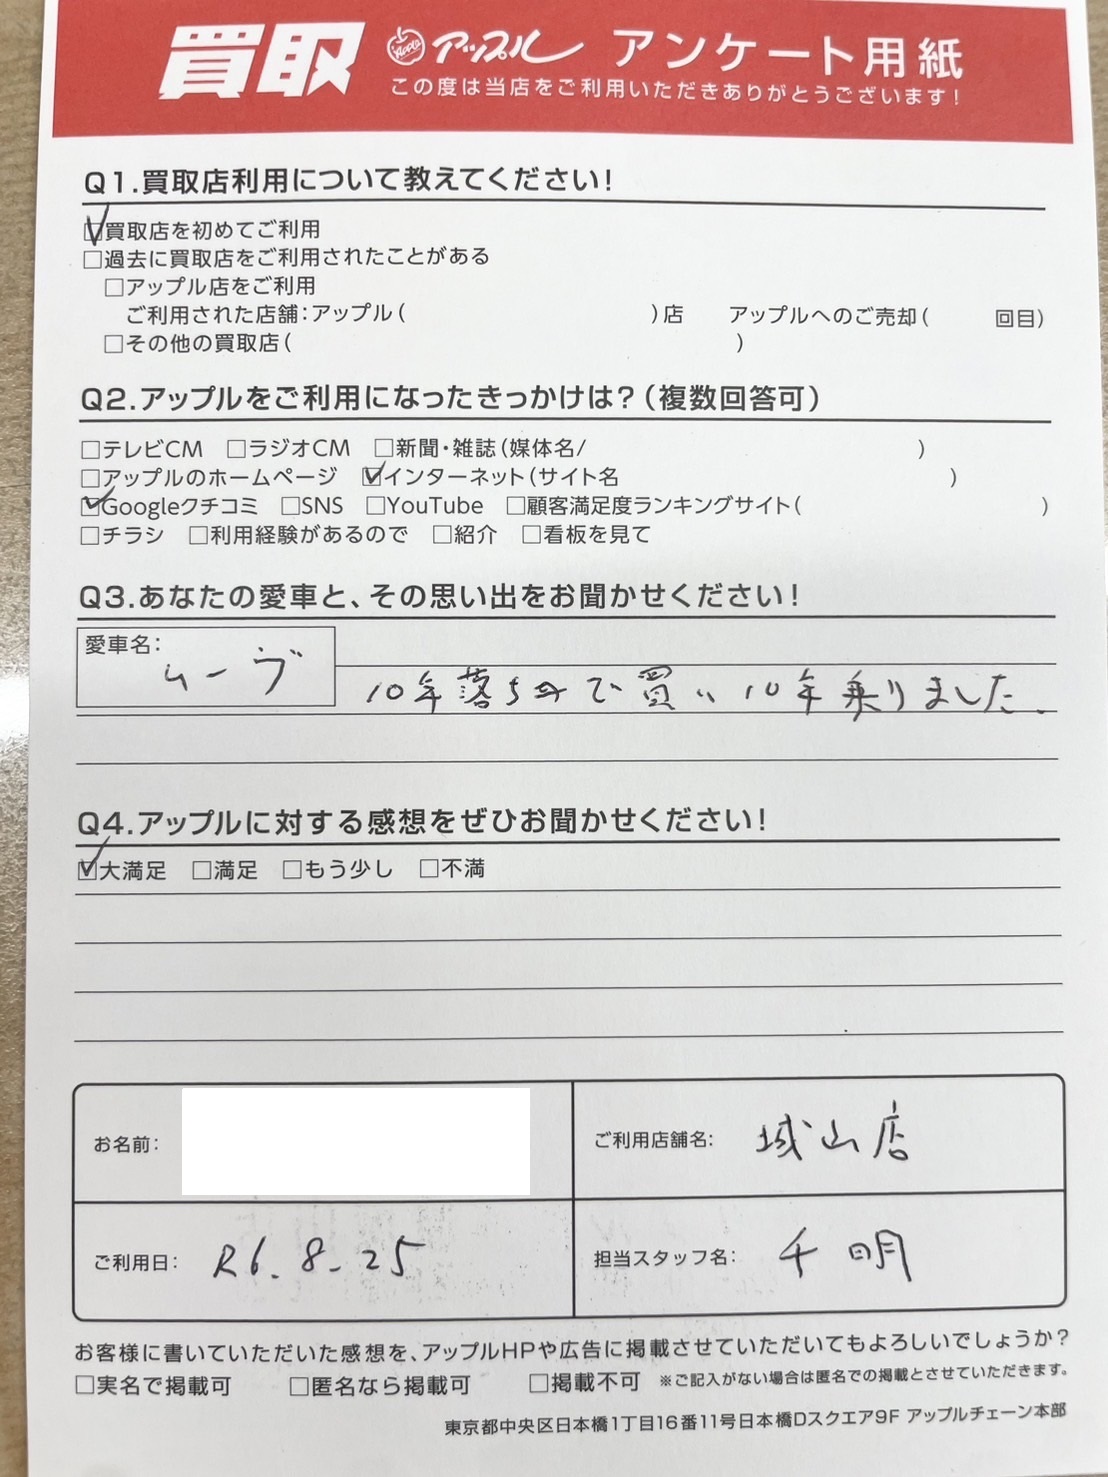 買取 Apple アップル アンケート用紙
この度は当店をご利用いただきありがとうございます!
Q1.買取店利用について教えてください!
☑買取店を初めてご利用
□過去に買取店をご利用されたことがある
□アップル店をご利用
ご利用された店舗:アップル( )店 アップルへのご売却( 回目)
□その他の買取店( )
Q2.アップルをご利用になったきっかけは?(複数回答可)
□テレビCM □ラジオCM □新聞・雑誌(媒体名/ )
□アップルのホームページ ☑インターネット(サイト名 )
☑Googleクチコミ □SNS □YouTube □顧客満足度ランキングサイト( )
□チラシ □利用経験があるので □紹介 □看板を見て
Q3.あなたの愛車と、その思い出をお聞かせください!
愛車名:ムーヴ
10年落ちで買い10年乗りました.
Q4.アップルに対する感想をぜひお聞かせください!
☑大満足 □満足 □もう少し □不満
お名前:
ご利用店舗名: 城山店
ご利用日: R6.8.25
担当スタッフ名: 千明
お客様に書いていただいた感想を、アップルHPや広告に掲載させていただいてもよろしいでしょうか?
□実名で掲載可 □匿名なら掲載可 □掲載不可 ※ご記入がない場合は匿名での掲載とさせていただきます。
東京都中央区日本橋1丁目16番11号日本橋Dスクエア9F アップルチェーン本部